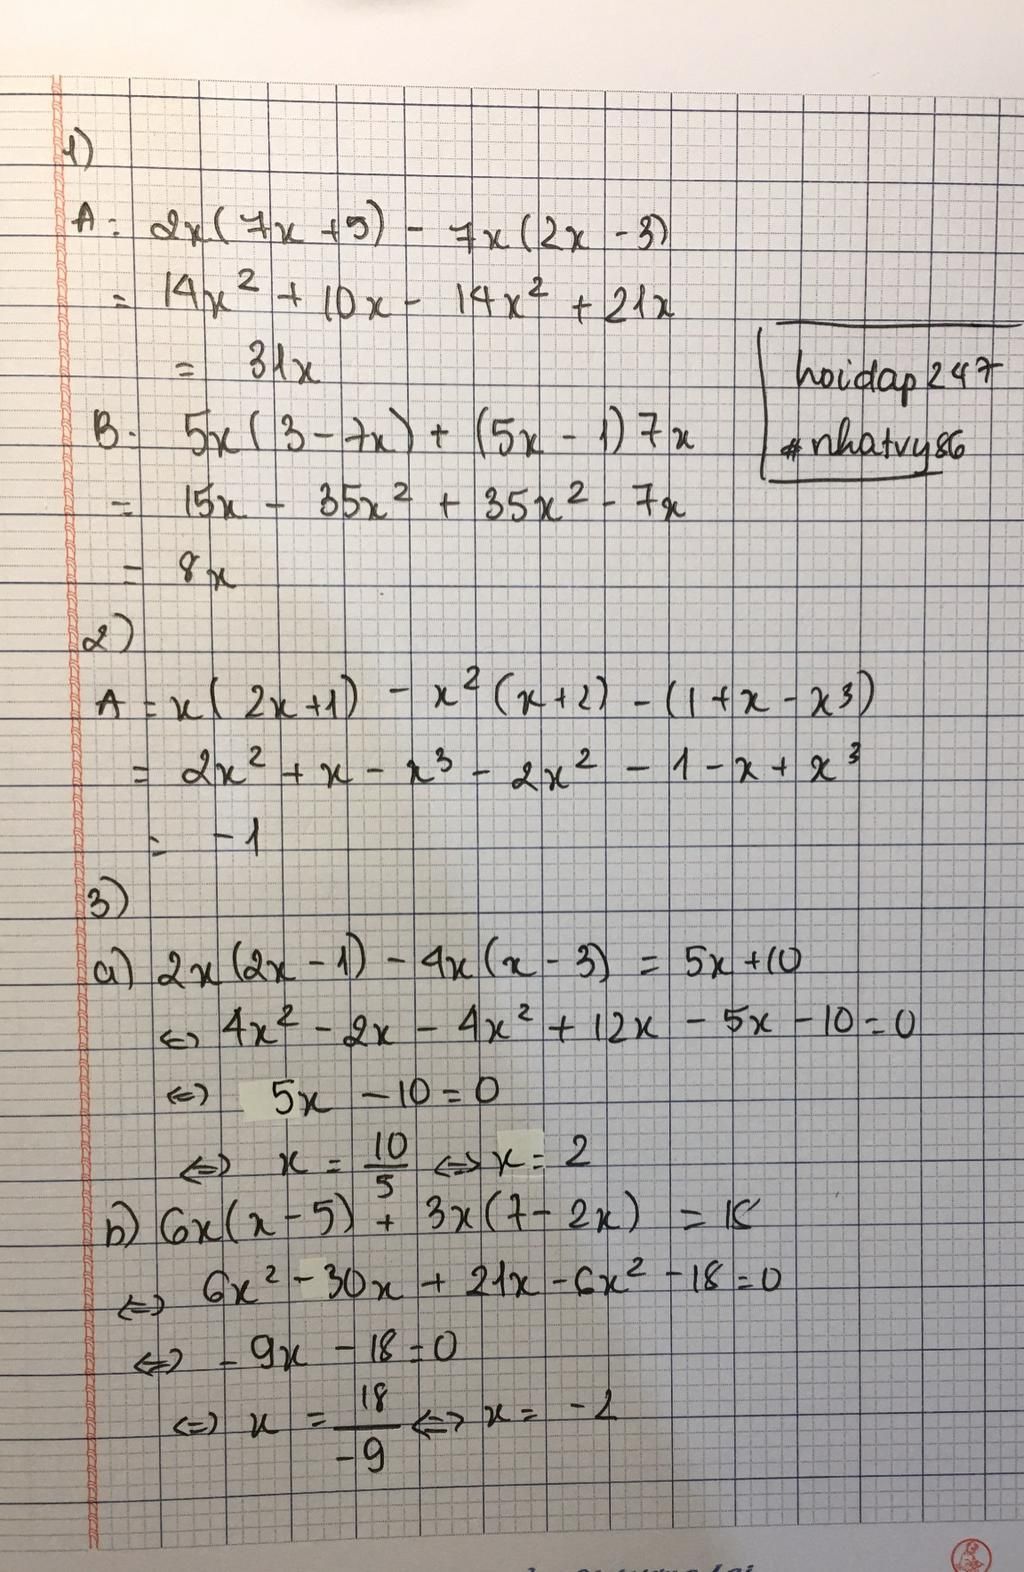 1)
A = 2x(7x + 5) - 7x(2x - 3)
= 14x² + 10x - 14x² + 21x
= 31x
hoidap247
#nhatvy86
B = 5x(3 - 7x) + (5x - 1)7x
= 15x - 35x² + 35x² - 7x
= 8x
2)
A = x(2x + 1) - x²(x + 2) - (1 + x - x³)
= 2x² + x - x³ - 2x² - 1 - x + x³
= -1
3)
a) 2x(2x - 1) - 4x(x - 3) = 5x + 10
⇔ 4x² - 2x - 4x² + 12x - 5x - 10 = 0
⇔ 5x - 10 = 0
⇔ x = 10/5 ⇔ x = 2
b) 6x(x - 5) + 3x(7 - 2x) = 18
⇔ 6x² - 30x + 21x - 6x² - 18 = 0
⇔ -9x - 18 = 0
⇔ x = 18/-9 ⇔ x = -2